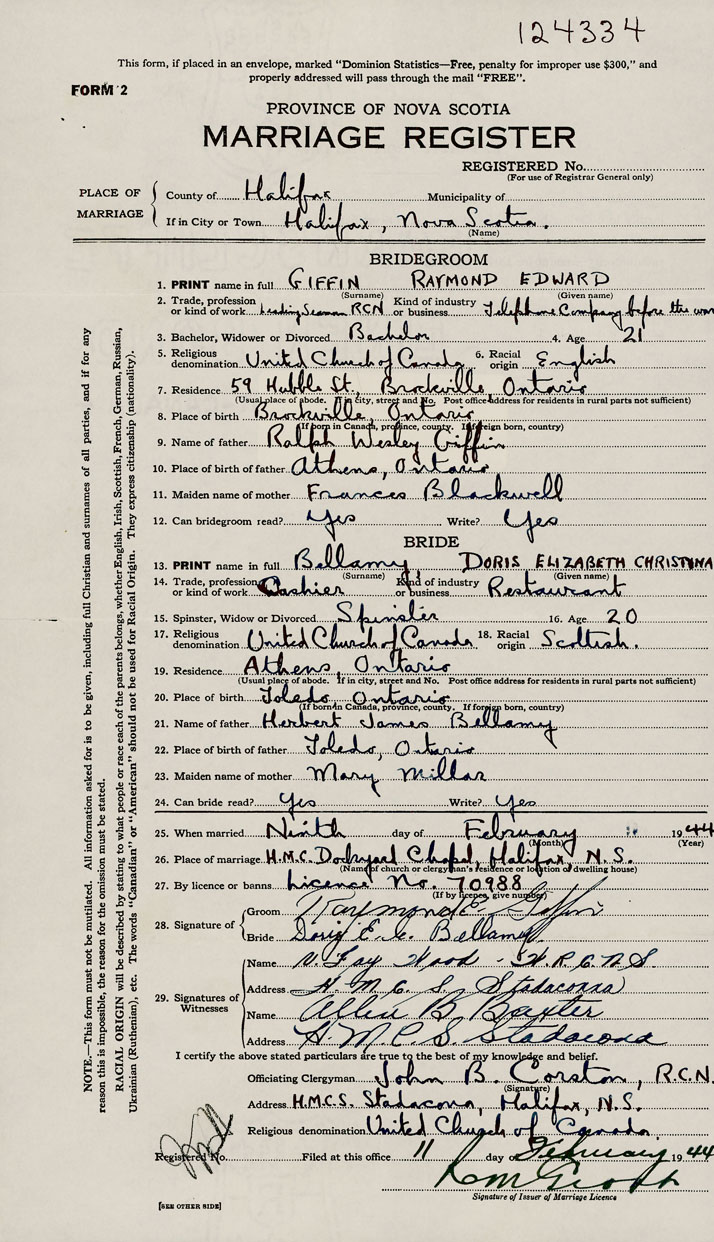 124334
This form, if placed in an envelope, marked "Dominion Statistics—Free, penalty for improper use $300," and
properly addressed will pass through the mail "FREE".
FORM 2
PROVINCE OF NOVA SCOTIA
MARRIAGE REGISTER
REGISTERED No.
(For use of Registrar General only)
PLACE OF MARRIAGE
County of Halifax Municipality of
If in City or Town Halifax, Nova Scotia.
(Name)
BRIDEGROOM
1. PRINT name in full GIFFIN RAYMOND EDWARD
(Surname) (Given name)
2. Trade, profession or kind of work Leading Seaman RCN Kind of industry or business Telephone Company before the war
3. Bachelor, Widower or Divorced Bachelor 4. Age 21
5. Religious denomination United Church of Canada 6. Racial origin English
7. Residence 59 Hubble St., Brockville, Ontario
(Usual place of abode. If in city, street and No. Post office address for residents in rural parts not sufficient)
8. Place of birth Brockville, Ontario
(If born in Canada, province, county. If foreign born, country)
9. Name of father Ralph Wesley Giffin
10. Place of birth of father Athens, Ontario
11. Maiden name of mother Frances Blackwell
12. Can bridegroom read? Yes Write? Yes
BRIDE
13. PRINT name in full Bellamy DORIS ELIZABETH CHRISTINA
(Surname) (Given name)
14. Trade, profession or kind of work Cashier Kind of industry or business Restaurant
15. Spinster, Widow or Divorced Spinster 16. Age 20
17. Religious denomination United Church of Canada 18. Racial origin Scottish.
19. Residence Athens, Ontario
(Usual place of abode. If in city, street and No. Post office address for residents in rural parts not sufficient)
20. Place of birth Toledo, Ontario
(If born in Canada, province, county. If foreign born, country)
21. Name of father Herbert James Bellamy
22. Place of birth of father Toledo, Ontario
23. Maiden name of mother Mary Millar
24. Can bride read? Yes Write? Yes
25. When married Ninth day of February 1944
(Month) (Year)
26. Place of marriage H.M.C. Dockyard Chapel, Halifax, N.S.
(Name of church or clergyman's residence or location of dwelling house)
27. By licence or banns Licence No. 70988
(If by licence, give number)
28. Signature of
Groom Raymond E. Giffin
Bride Doris E. C. Bellamy
29. Signatures of Witnesses
Name V. Fay Wood - W.R.C.N.S.
Address H.M.C.S. Stadacona
Name Allin B. Baxter
Address H.M.C.S. Stadacona
I certify the above stated particulars are true to the best of my knowledge and belief.
Officiating Clergyman John B. Corston, R.C.N.
(Signature)
Address H.M.C.S. Stadacona, Halifax, N.S.
Religious denomination United Church of Canada
Registered No. Filed at this office 11 day of February 1944
Signature of Issuer of Marriage Licence
[SEE OTHER SIDE]
NOTE.—This form must not be mutilated. All information asked for is to be given, including full Christian and surnames of all parties, and if for any
reason this is impossible, the reason for the omission must be stated.
RACIAL ORIGIN will be described by stating to what people or race each of the parents belongs, whether English, Irish, Scottish, French, German, Russian,
Ukrainian (Ruthenian), etc. The words "Canadian" or "American" should not be used for Racial Origin. They express citizenship (nationality).